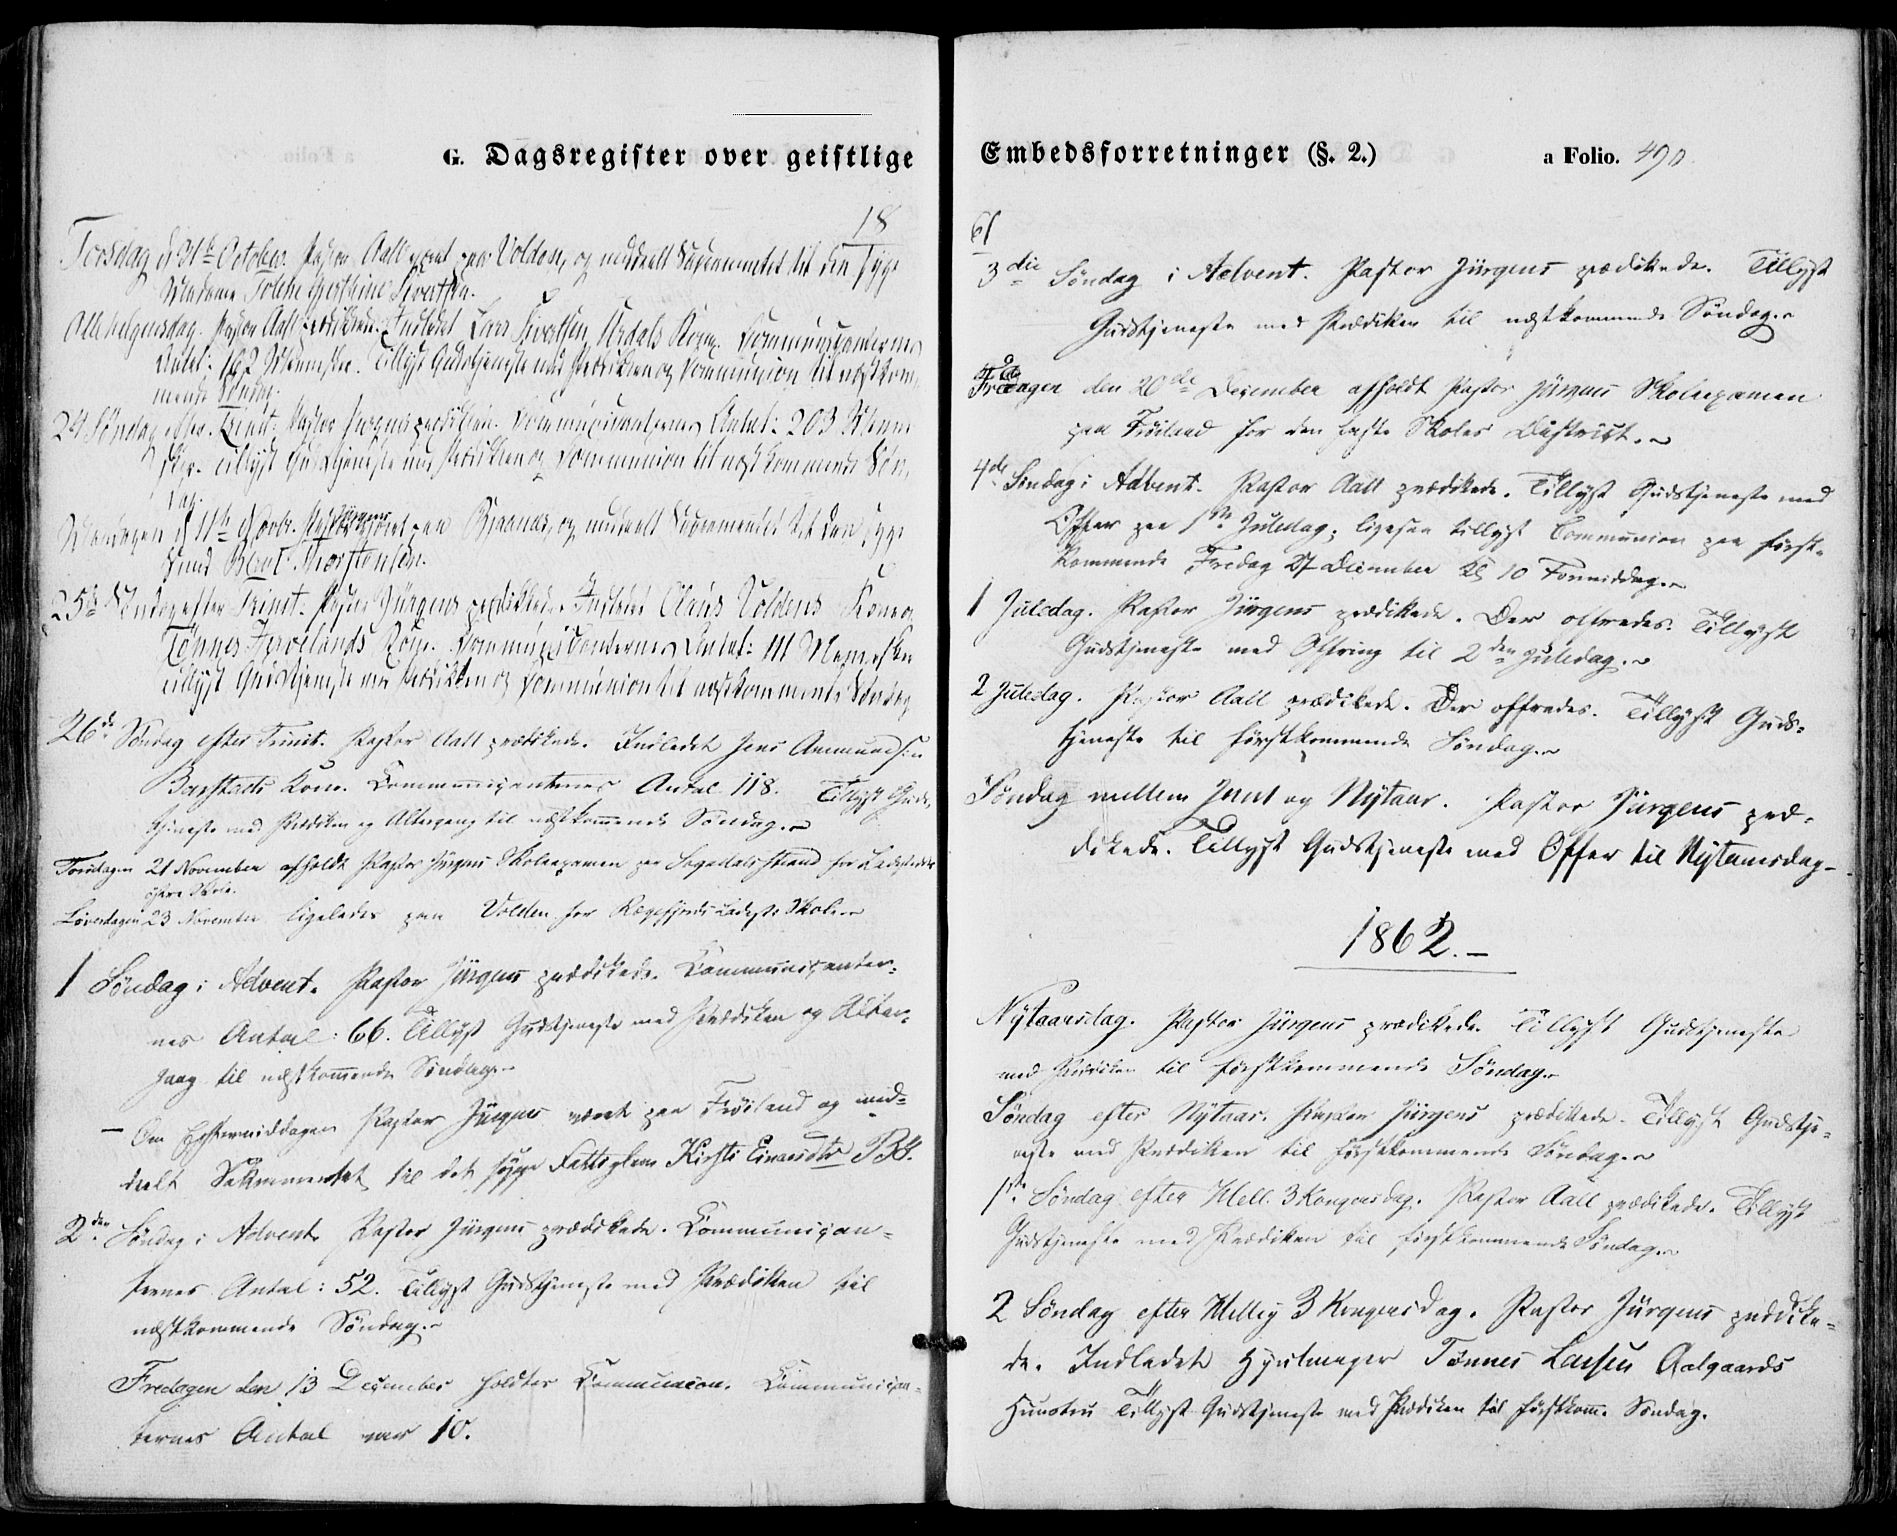 G. Dagsregister over geistlige
18
Torsdag d. 31te October. Pastor Aall været paa Volden, og meddeelt Sacramentet til den syge
Madame Tolline Sivertsen.
Allehelgensdag. Pastor Aall prædikede. Indledet Lars Sivertsen Urdals Kone. Communicanternes
Antal: 162 Mennesker. Tillyst Gudstjeneste med Prædiken og Communion til næstkom,
mende Søndag.
24 Søndag efter Trinit. Pastor Jürgens prædikede. Communicanternes Antal: 203 Menne
sker. Tillyst Gudstjeneste med Prædiken og Communion til næstkommende Søn,
dag.
Mandagen d. 11te Novbr. Pastor Jürgens været paa og meddeelt Sacramentet til den syge
Berent Thorstensen.
25de Søndag efter Trinit. Pastor Jürgens prædikede. Indledet Claus Voldens Kone og
Tønnes Kone. Communicanternes Antal: 111 Mennesker
tillyst Gudstjeneste med Prædiken og Communion til næstkommende Søndag
26de Søndag efter Trinit. Pastor Aall prædikede. Indledet Jens Aamundsen
Barstads Kone. Communicanternes Antal 118. Tillyst Guds,
tjeneste med Prædiken og Altergang til næstkommende Søndag.
Torsdagen 21 November afholdt Pastor Jürgens Skoleexamen paa Sogndalsstrand for Ladestedets
øvre Skole.
Løverdagen 23 November ligeledes paa Volden for Rægefjords Ladesteds Skole.
1 Søndag i Advent. Pastor Jürgens prædikede. Communicanter-
nes Antal: 66. Tillyst Gudstjeneste med Prædiken og Alter-
gang til næstkommende Søndag.
— Om Eftermiddagen Pastor Jürgens været paa Frøiland og med-
deelt Sakramentet til det syge Fattiglem Kirsti Einarsdtr
2den Søndag i Advent. Pastor Jürgens prædikede. Communican-
ternes Antal: 52. Tillyst Gudstjeneste med Prædiken til
næstkommende Søndag.
Fredagen den 13 December holdtes Communion. Communican-
ternes Antal var 10.
Embedsforretninger (§. 2.)
a Folio. 490
61
3die Søndag i Advent. Pastor Jürgens prædikede. Tillyst
Gudstjeneste med Prædiken til næstkommende Søndag.
Fredagen den 20de December afholdt Pastor Jürgens Skoleexamen
paa Frøiland for den faste Skoles District.
4de Søndag i Advent. Pastor Aall prædikede. Tillyst Gudstjeneste med
Offer paa 1ste Juledag; ligesaa tillyst Communion paa først-
kommende Fredag 27 December Kl 10 Formiddag.
1 Juledag. Pastor Jürgens prædikede. Der offredes. Tillyst
Gudstjeneste med Offring til 2den Juledag.
2 Juledag. Pastor Aall prædikede. Der offredes. Tillyst Guds-
tjeneste til førstkommende Søndag.
Søndag mellem Juul og Nytaar. Pastor Jürgens præ-
dikede. Tillyst Gudstjeneste med Offer til Nytaarsdag.
1862.
Nytaarsdag. Pastor Jürgens prædikede. Tillyst Gudstjeneste
med Prædiken til førstkommende Søndag.
Søndag efter Nytaar. Pastor Jürgens prædikede. Tillyst Gudstje-
neste med Prædiken til førstkommende Søndag.
1ste Søndag efter Hell. 3 Kongersdag. Pastor Aall prædikede. Tillyst
Gudstjeneste med Prædiken til førstkommende Søndag.
2 Søndag efter Hellig 3 Kongersdag. Pastor Jürgens prædike-
de. Indledet Hjulmager Tønnes Larsen Aalgaards
Hustru Tillyst Gudstjeneste med Prædiken til førstkomm. Søndag.